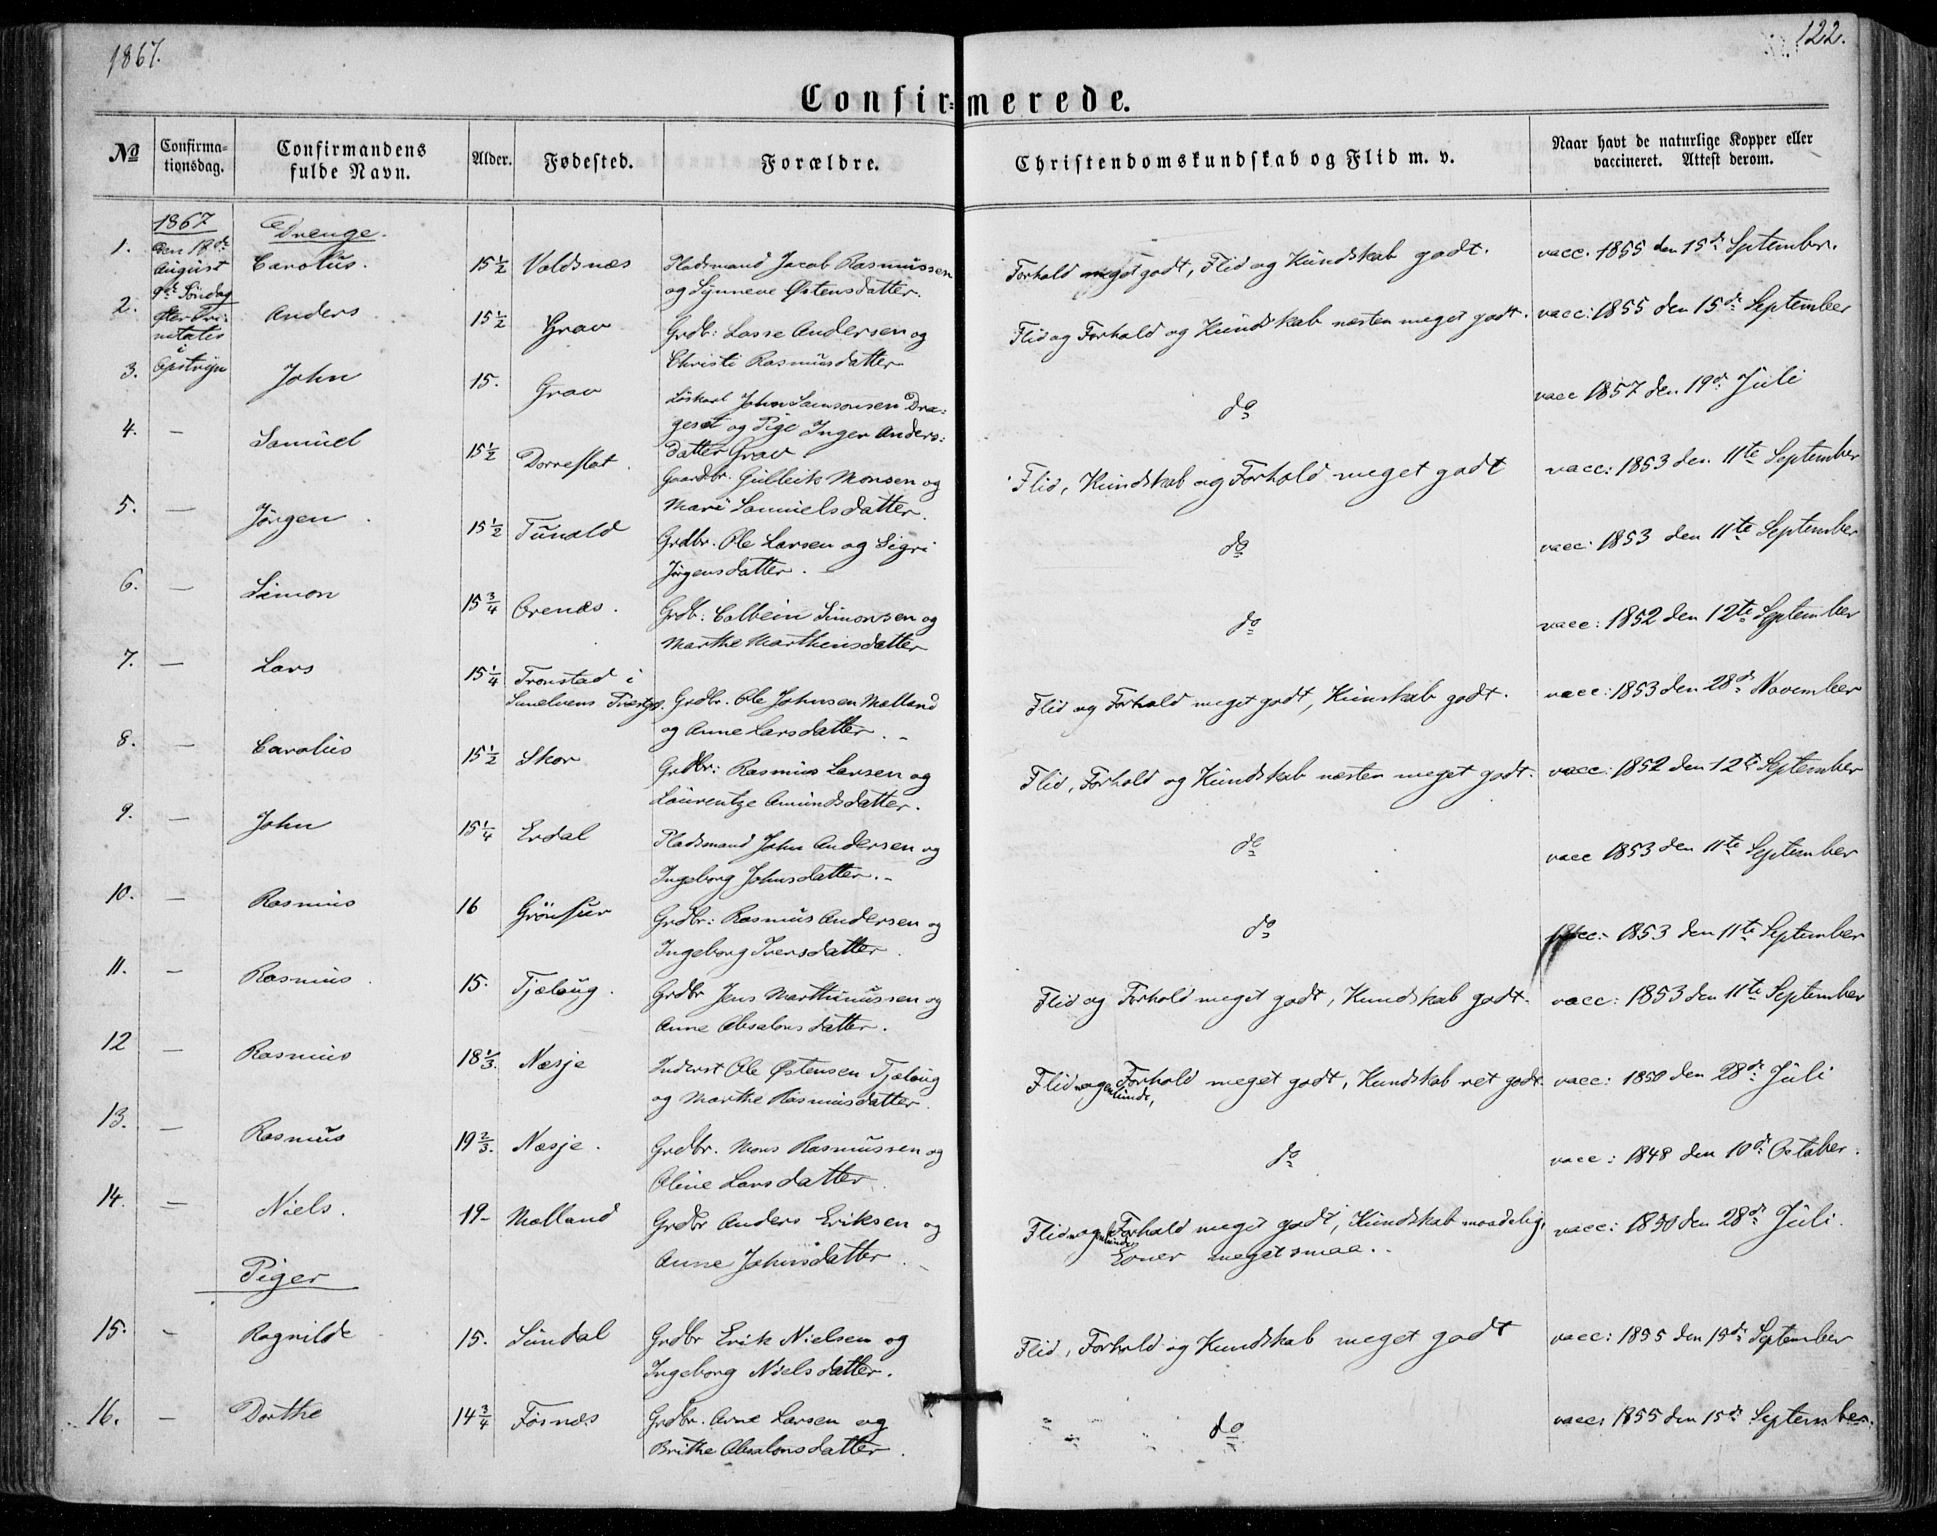 1867.
122.
Confirmerede.
No
Confirma-
tionsdag.
Confirmandens
fulde Navn.
Alder.
Fødested.
Forældre.
Christendomskundskab og Flid m. v.
Naar havt de naturlige Kopper eller
vaccineret. Attest derom.
1867
Drenge.
1.
den 18de
August
9de Søndag
efter Tri-
nitatis
i
Opstryn
Carolus.
15 1/2
Voldsnæs
Pladsmand Jacob Rasmussen
og Synneve Østensdatter.
Forhold meget godt, Flid og Kundskab godt.
vacc. 1855 den 15de September.
2.
Anders
15 1/2
Grav
Grdb: Lasse Andersen og
Christi Rasmusdatter
Flid og Forhold og Kundskab næsten meget godt.
vacc: 1855 den 15de September
3.
John
15.
Grav
Løskarl John Samsonsen Dra-
geset og Pige Inger Anders-
datter Grav
do
vacc 1857 den 19de Juli
4. -
Samuel
15 1/2
Dorreflot.
Gaardbr. Gulleik Monsen og
Mari Samuelsdatter.
Flid, Kundskab og Forhold meget godt
vacc: 1853 den 11te September
5. -
Jørgen.
15 1/2
Tunold
Grdbr. Ole Larsen og Sigri
Jørgensdatter.
do
vacc: 1853 den 11te September
6. -
Simon
15 3/4
Ørenæs.
Grdb: Colbein Simonsen og
Marthe Marthinsdatter
do
vacc: 1852 den 12te September
7. -
Lars
15 1/4
Tronstad i
Sunelvens Præstgd.
Grdbr. Ole Johnsen Mælland
og Anne Larsdatter. -
Flid og Forhold meget godt, Kunskab godt.
vacc: 1853 den 28de November
8. -
Carolus
15 1/2
Skor
Grdbr: Rasmus Larsen og
Laurentze Amundsdatter.
Flid, Forhold og Kundskab næsten meget godt.
vacc: 1852 den 12te September
9. -
John
15 1/4
Erdal
Pladsmand John Andersen og
Ingeborg Johnsdatter. -
do
vacc 1853 den 11te September
10. -
Rasmus
16
Grønfur
Grdbr: Rasmus Andersen og
Ingeborg Iversdatter.
do
vacc: 1853 den 11te September
11. -
Rasmus.
15.
Tjælaug.
Grdbr Jens Marthinussen og
Anne Absalonsdatter.
Flid og Forhold meget godt, Kundskab godt.
vacc: 1853 den 11te September
12 -
Rasmus
18 1/3.
Næsje
Inderst Ole Østensen Tjælaug
og Marthe Rasmusdatter.
Flid nogenlunde, Forhold meget godt, Kundskab ret godt.
vacc: 1850 den 28de Juli
13. -
Rasmus
19 2/3.
Næsje.
Grdbr. Mons Rasmussen og
Oline Larsdatter.
do
vacc: 1848 den 10de October.
14. -
Niels.
19 -
Mælland
Grdbr Anders Eriksen og
Anne Johnsdatter. -
Flid nogenlunde, Forhold meget godt, Kundskab maadelig,
Evner meget smaa. .
vacc: 1850 den 28de Juli.
Piger
15. -
Ragnilde
15.
Sundal
Grdbr Erik Nielsen og
Ingeborg Nielsdatter.
Flid, Forhold og Kundskab meget godt
vacc: 1855 den 15de September
16. -
Dorthe
14 3/4
Fosnæs
Grdbr. Arne Larsen og
Brithe Absalonsdatter.
do
vacc: 1855 den 15de September.